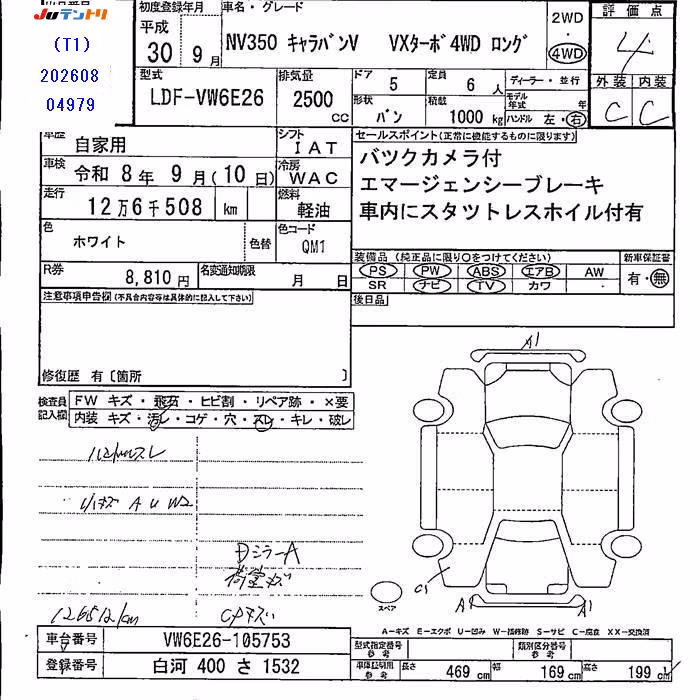 JUテントリ
(T1)
202608
04979
初度登録年月
車名・グレード
平成
30 9月
NV350 キャラバンV VXターボ4WD ロング
2WD
・
4WD
評価点
4
型式
LDF-VW6E26
排気量
2500
CC
ドア
5
定員
6 人
形状
バン
積載
1000 kg
ディーラー・並行
モデル年式 年
ハンドル 左・右
外装 内装
C C
車歴
自家用
シフト
IAT
車検
令和 8年 9月(10日)
冷房
WAC
走行
12万6千508 km
燃料
軽油
色
ホワイト
色替
色コード
QM1
R券
8,810円
名変通知期限
月 日
セールスポイント(正常に機能するものに限ります)
バックカメラ付
エマージェンシーブレーキ
車内にスタツトレスホイル付有
装備品(純正品に限り○をつけてください)
PS PW ABS エアB AW
SR ナビ TV カワ
新車保証書
有・無
後日品
注意事項申告欄(不具合内容等は具体的に記入して下さい)
修復歴 有〔箇所 〕
検査員記入欄
FW キズ・飛石・ヒビ割・リペア跡・×要
内装 キズ・汚レ・コゲ・穴・スレ・キレ・破レ
ハンドルスレ
A U W2
DミラーA
荷室キズ
126512km
A1
C1
A1
A1
スペア
A-キズ E-エクボ U-凹み W-補修跡 S-サビ C-腐食 XX-交換済
車台番号
VW6E26-105753
登録番号
白河 400 さ 1532
型式指定番号
参考
類別区分番号
参考
車体証明用
参考
長さ
469 cm
幅
169 cm
高さ
199 cm